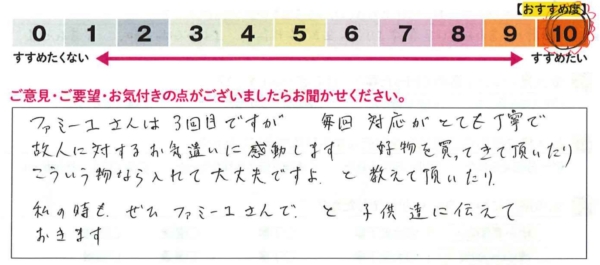 【おすすめ度】
0 1 2 3 4 5 6 7 8 9 10
すすめたくない すすめたい
ご意見・ご要望・お気付きの点がございましたらお聞かせください。
ファミーユさんは3回目ですが 毎回 対応がとても丁寧で
故人に対するお気遣いに感動します 好物を買ってきて頂いたり
こういう物なら入れて大丈夫ですよ と 教えて頂いたり
私の時も ぜひ ファミーユさんで と 子供達に伝えて
おきます